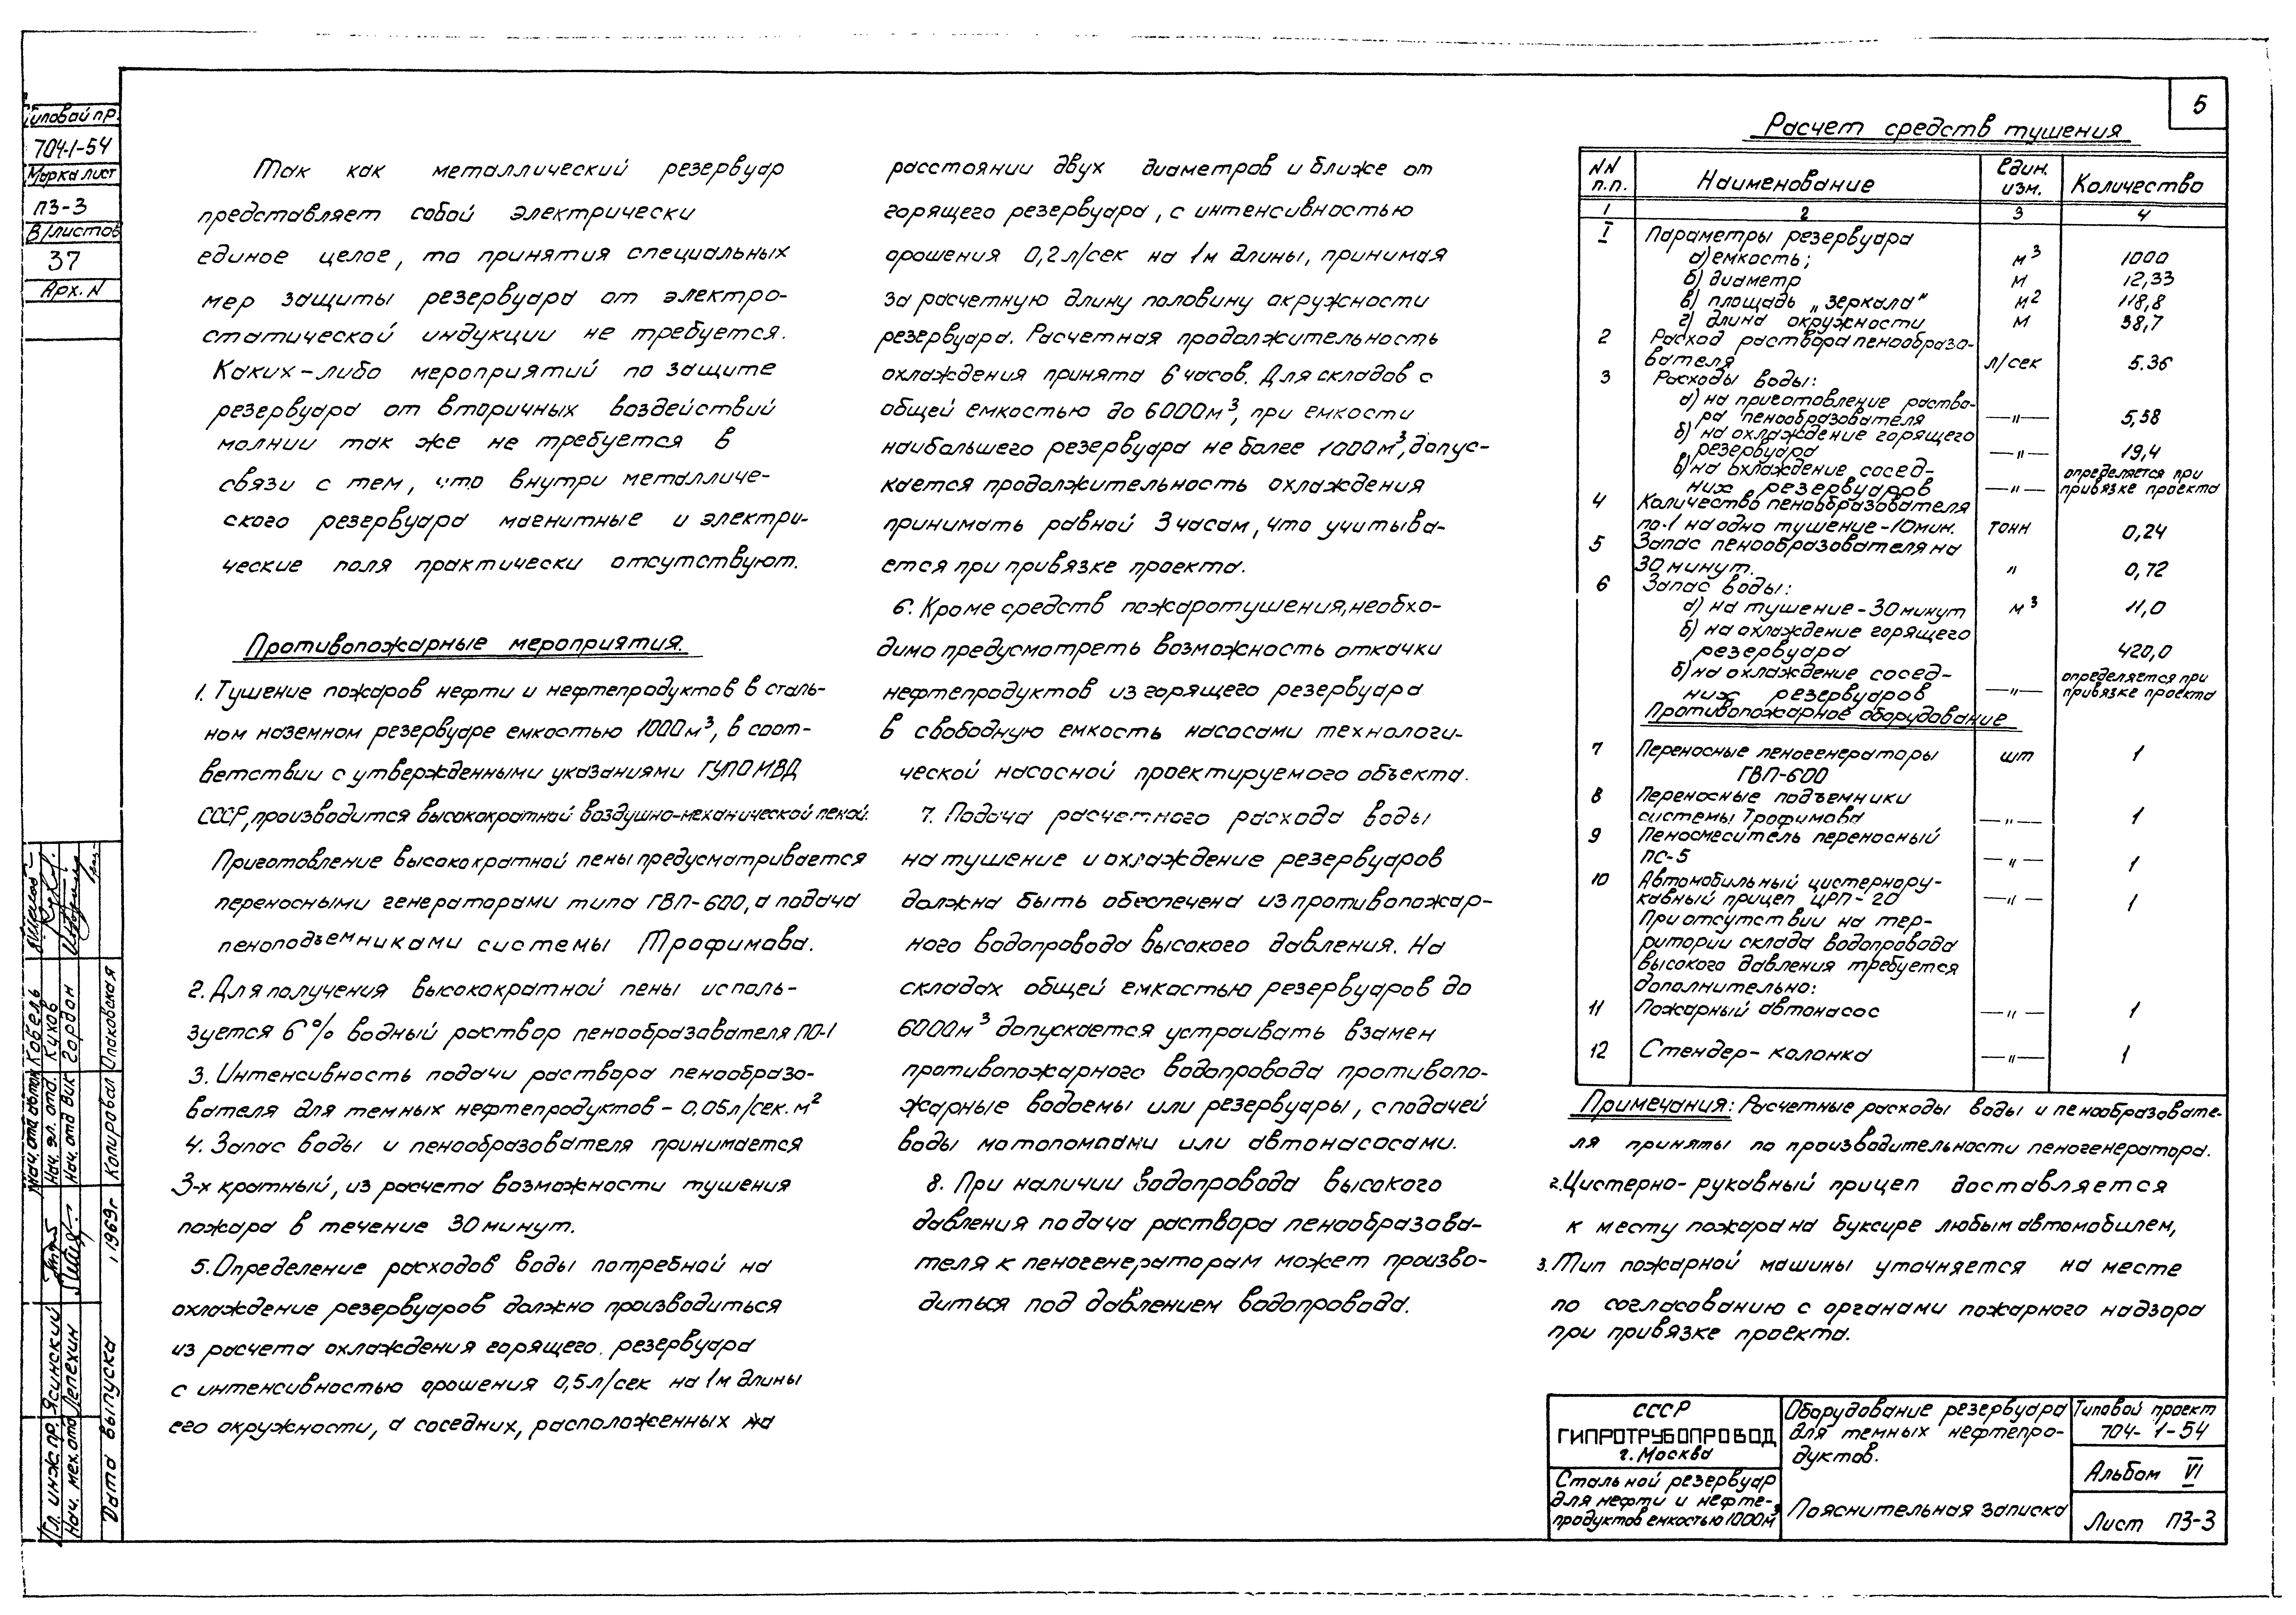 5
Типовой пр.
704-1-54
Марка лист
ПЗ-3
В/листов
37
Арх. N
Так как металлический резервуар
представляет собой электрически
единое целое, то принятия специальных
мер защиты резервуара от электро-
статической индукции не требуется.
Каких-либо мероприятий по защите
резервуара от вторичных воздействий
молнии так же не требуется в
связи с тем, что внутри металличе-
ского резервуара магнитные и электри-
ческие поля практически отсутствуют.
Противопожарные мероприятия.
1. Тушение пожаров нефти и нефтепродуктов в сталь-
ном наземном резервуаре емкостью 1000м³, в соот-
ветствии с утвержденными указаниями ГУПО МВД
СССР, производится высокократной воздушно-механической пеной.
Приготовление высокократной пены предусматривается
переносными генераторами типа ГВП-600, а подача
пеноподъемниками системы Трофимова.
2. Для получения высокократной пены исполь-
зуется 6% водный раствор пенообразователя ПО-1
3. Интенсивность подачи раствора пенообразо-
вателя для темных нефтепродуктов - 0,05л/сек.м²
4. Запас воды и пенообразователя принимается
3-х кратный, из расчета возможности тушения
пожара в течение 30 минут.
5. Определение расходов воды потребной на
охлаждение резервуаров должно производиться
из расчета охлаждения горящего резервуара
с интенсивностью орошения 0,5л/сек на 1м длины
его окружности, а соседних, расположенных на
расстоянии двух диаметров и ближе от
горящего резервуара, с интенсивностью
орошения 0,2л/сек на 1м длины, принимая
за расчетную длину половину окружности
резервуара. Расчетная продолжительность
охлаждения принята 6 часов. Для складов с
общей емкостью до 6000м³, при емкости
наибольшего резервуара не более 1000м³, допус-
кается продолжительность охлаждения
принимать равной 3 часам, что учитыва-
ется при привязке проекта.
6. Кроме средств пожаротушения, необхо-
димо предусмотреть возможность откачки
нефтепродуктов из горящего резервуара
в свободную емкость насосами технологи-
ческой насосной проектируемого объекта.
7. Подача расчетного расхода воды
на тушение и охлаждение резервуаров
должна быть обеспечена из противопожар-
ного водопровода высокого давления. На
складах общей емкостью резервуаров до
6000м³ допускается устраивать взамен
противопожарного водопровода противопо-
жарные водоемы или резервуары, с подачей
воды мотопомпами или автонасосами.
8. При наличии водопровода высокого
давления подача раствора пенообразова-
теля к пеногенераторам может произво-
диться под давлением водопровода.
Расчет средств тушения
NN п.п. Наименование Един. изм. Количество
1 2 3 4
I Параметры резервуара
а) емкость; м³ 1000
б) диаметр м 12,33
в) площадь „зеркала" м² 118,8
г) длина окружности м 38,7
2 Расход раствора пенообразо-
вателя л/сек 5.36
3 Расходы воды:
а) на приготовление раство-
ра пенообразователя —"— 5,58
б) на охлаждение горящего
резервуара —"— 19,4
в) на охлаждение сосед- определяется при
них резервуаров —"— привязке проекта
4 Количество пенообразователя
по-1 на одно тушение-10мин. тонн 0,24
5 Запас пенообразователя на
30 минут. " 0,72
6 Запас воды:
а) на тушение-30 минут м³ 11,0
б) на охлаждение горящего
резервуара 420,0
б) на охлаждение сосед- определяется при
них резервуаров —"— привязке проекта
Противопожарное оборудование
7 Переносные пеногенераторы шт 1
ГВП-600
8 Переносные подъемники
системы Трофимова —"— 1
9 Пеносмеситель переносный
ПС-5 —"— 1
10 Автомобильный цистерно ру-
кавный прицеп ЦРП-20 —"— 1
При отсутствии на тер-
ритории склада водопровода
высокого давления требуется
дополнительно:
11 Пожарный автонасос —"— 1
12 Стендер-колонка —"— 1
Примечания: Расчетные расходы воды и пенообразовате-
ля приняты по производительности пеногенератора.
2. Цистерно-рукавный прицеп доставляется
к месту пожара на буксире любым автомобилем,
3. Тип пожарной машины уточняется на месте
по согласованию с органами пожарного надзора
при привязке проекта.
СССР
ГИПРОТРУБОПРОВОД
г. Москва
Стальной резервуар
для нефти и нефте-
продуктов емкостью 1000м³
Оборудование резервуара
для темных нефтепро-
дуктов.
Пояснительная записка
Типовой проект
704-1-54
Альбом VI
Лист ПЗ-3
Кобель
Нач. эл. отд. Кухов
Нач. отд ВиК Гордон
Копировал Опаковская
Гл. инж. пр. Ясинский
Нач. мех. отд Лепехин
Дата выпуска 1969г-